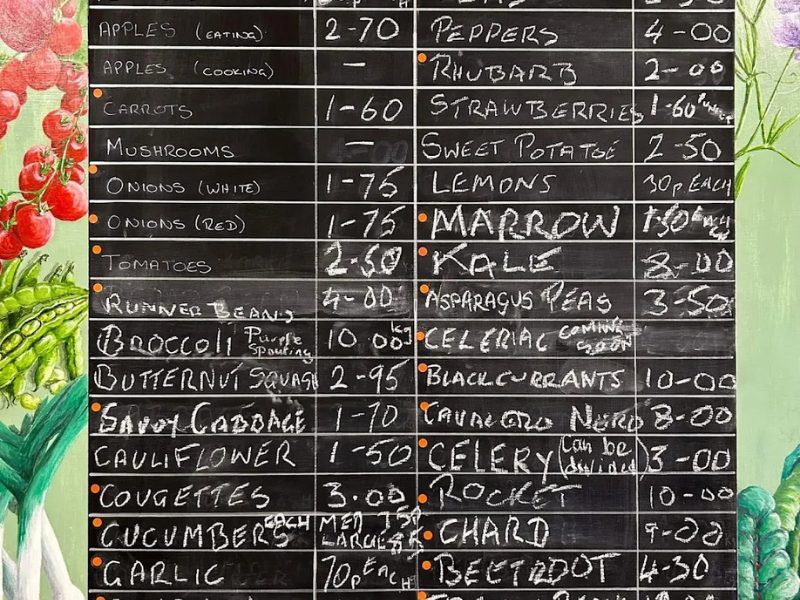 APPLES (EATING) 2-70
APPLES (COOKING) —
CARROTS 1-60
MUSHROOMS —
ONIONS (WHITE) 1-75
ONIONS (RED) 1-75
TOMATOES 2-50
RUNNER BEANS 4-00
BROCCOLI Purple Sprouting 10 00 kg
BUTTERNUT SQUASH 2-95
SAVOY CABBAGE 1-70
CAULIFLOWER 1-50
COUGETTES 3.00
CUCUMBERS EACH MED 75P
LARGE
GARLIC 70p EACH
PEPPERS 4-00
RHUBARB 2-00
STRAWBERRIES 1-60
SWEET POTATOE 2-50
LEMONS 30p EACH
MARROW 1-50 EACH
KALE 8-00
ASPARAGUS PEAS 3-50
CELERIAC COMING SOON
BLACKCURRANTS 10-00
CAVALERO NERO 8-00
CELERY (Can be divided) 3-00
ROCKET 10-00
CHARD 9-00
BEETROOT 4-30